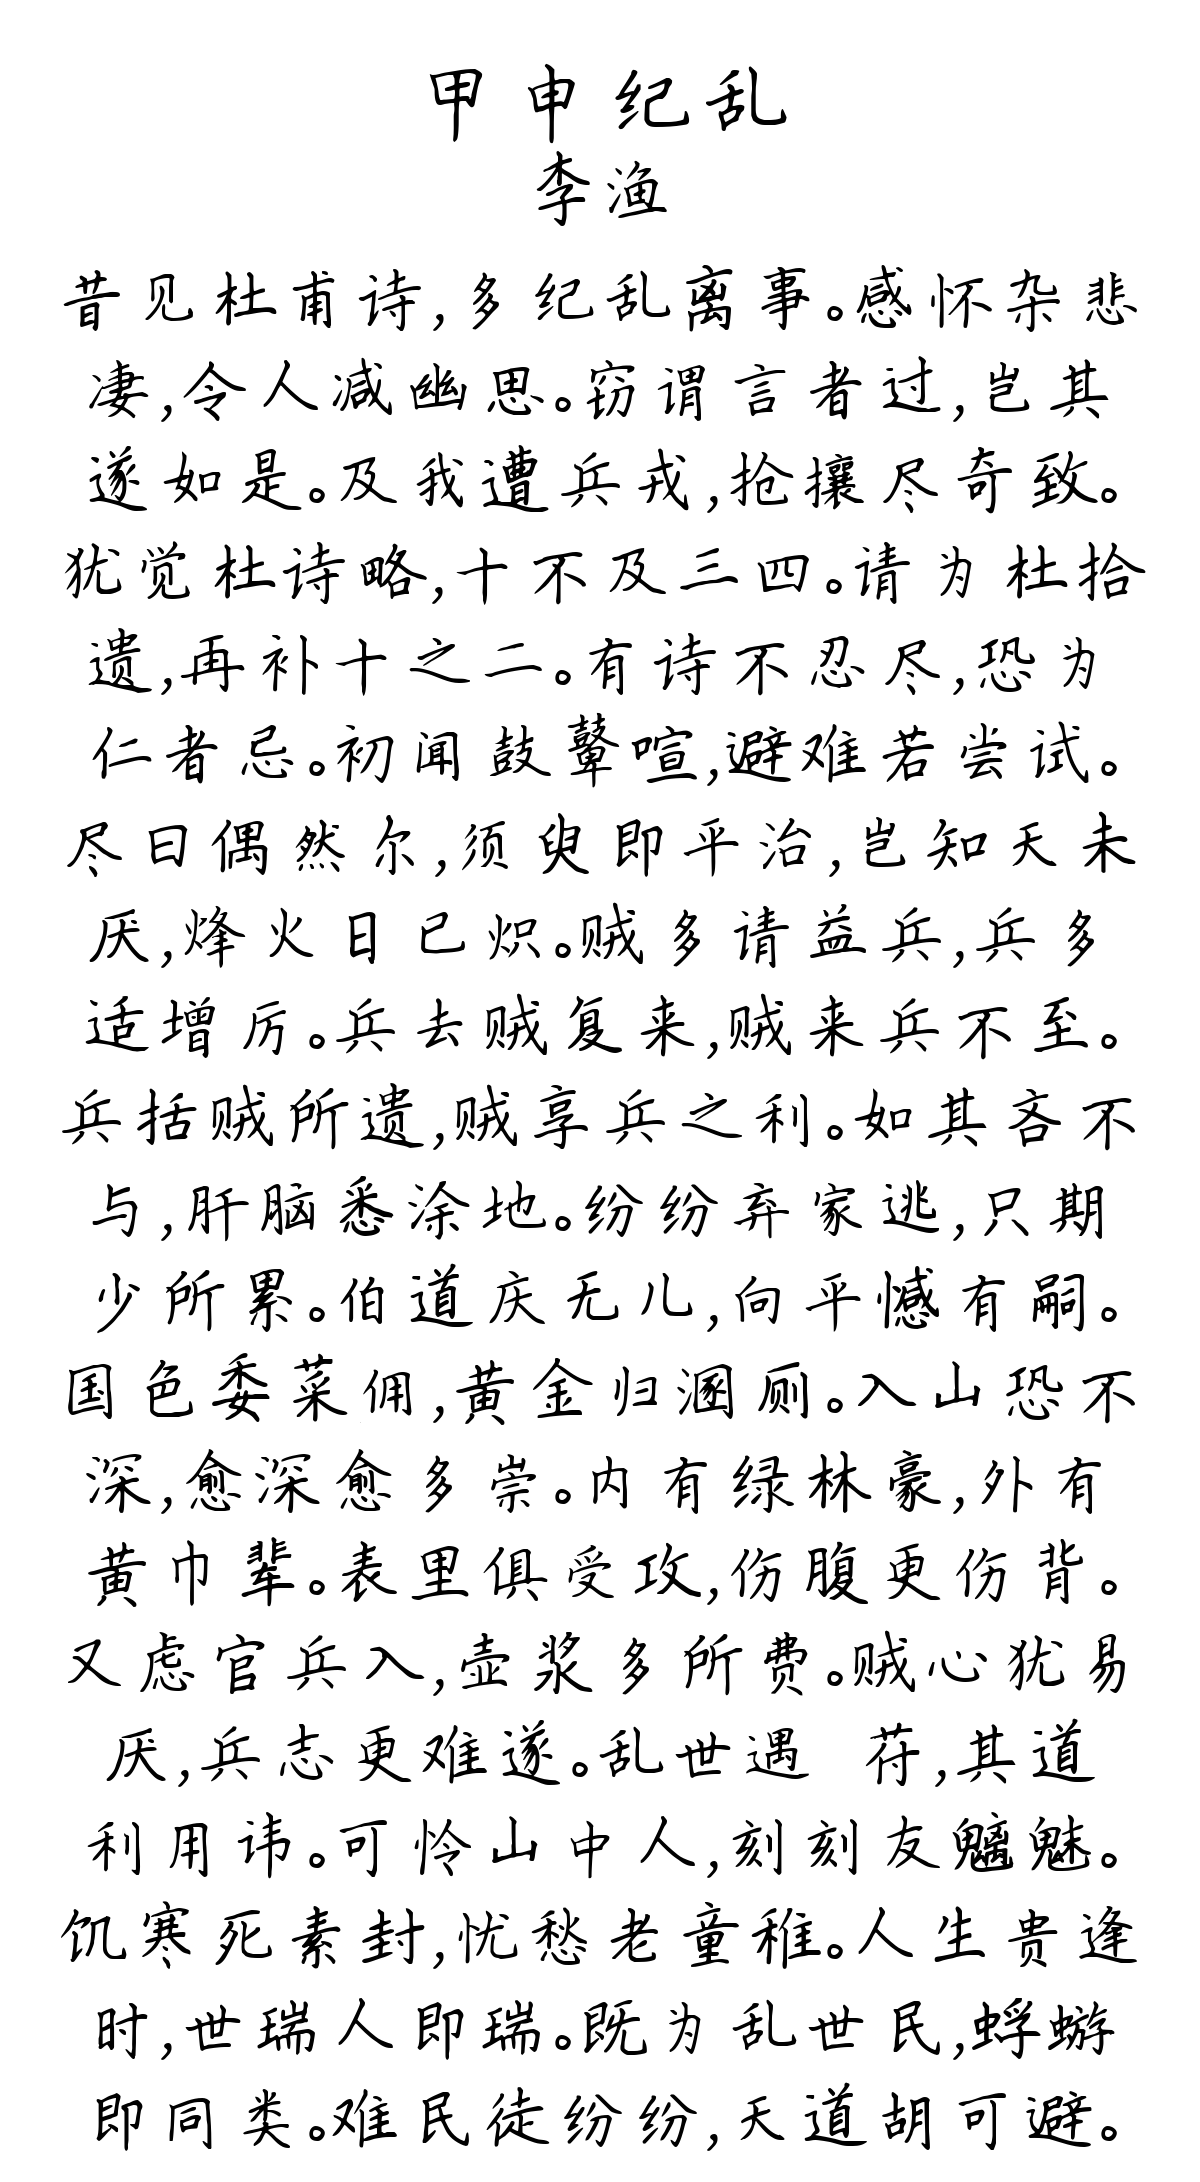 甲申纪乱
李渔
昔见杜甫诗,多纪乱离事。感怀杂悲
凄,令人减幽思。窃谓言者过,岂其
遂如是。及我遭兵戎,抢攘尽奇致。
犹觉杜诗略,十不及三四。请为杜拾
遗,再补十之二。有诗不忍尽,恐为
仁者忌。初闻鼓鼙喧,避难若尝试。
尽曰偶然尔,须臾即平治,岂知天未
厌,烽火日已炽。贼多请益兵,兵多
适增厉。兵去贼复来,贼来兵不至。
兵括贼所遗,贼享兵之利。如其吝不
与,肝脑悉涂地。纷纷弃家逃,只期
少所累。伯道庆无儿,向平憾有嗣。
国色委菜佣,黄金归溷厕。入山恐不
深,愈深愈多崇。内有绿林豪,外有
黄巾辈。表里俱受攻,伤腹更伤背。
又虑官兵入,壶浆多所费。贼心犹易
厌,兵志更难遂。乱世遇 苻,其道
利用讳。可怜山中人,刻刻友魑魅。
饥寒死素封,忧愁老童稚。人生贵逢
时,世瑞人即瑞。既为乱世民,蜉蝣
即同类。难民徒纷纷,天道胡可避。